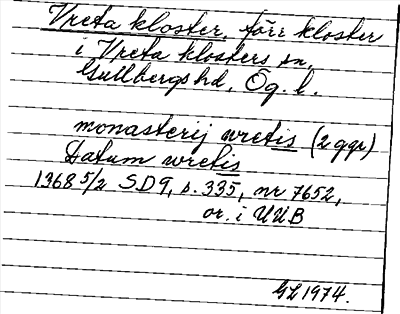 Vreta kloster, förr kloster
i Vreta klosters sn,
Gullbergs hd, Ög. l.
monasterij wretis (2 ggr)
Datum wretis
1368 5/2 SD 9, s. 335, nr 7652,
or. i UUB
GL 1974.